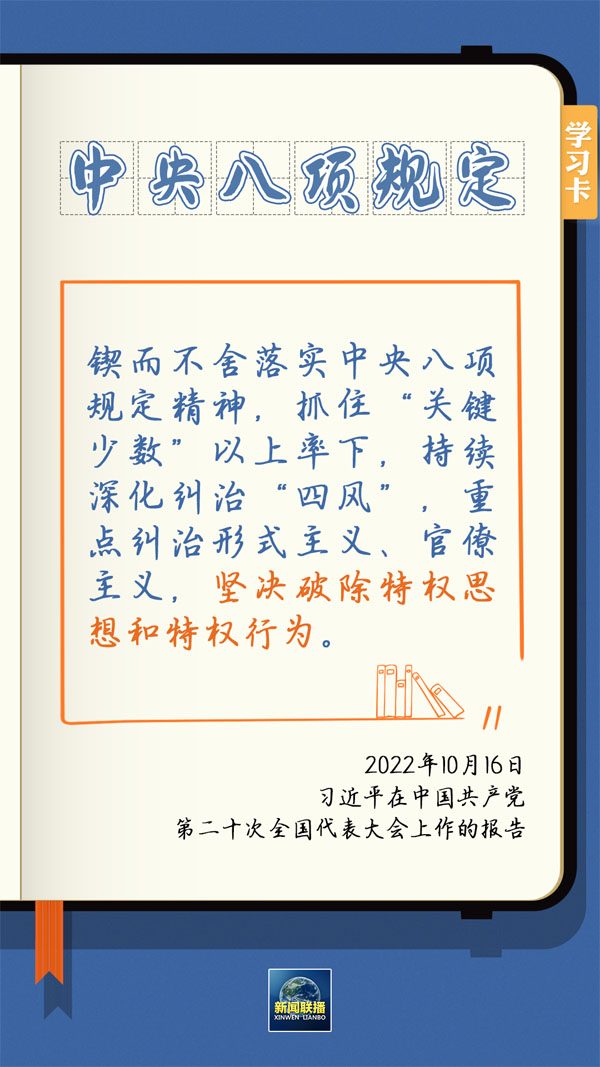 学习卡
中央八项规定
锲而不舍落实中央八项
规定精神，抓住“关键
少数”以上率下，持续
深化纠治“四风”，重
点纠治形式主义、官僚
主义，坚决破除特权思
想和特权行为。
2022年10月16日
习近平在中国共产党
第二十次全国代表大会上作的报告
新闻联播
XINWEN LIANBO